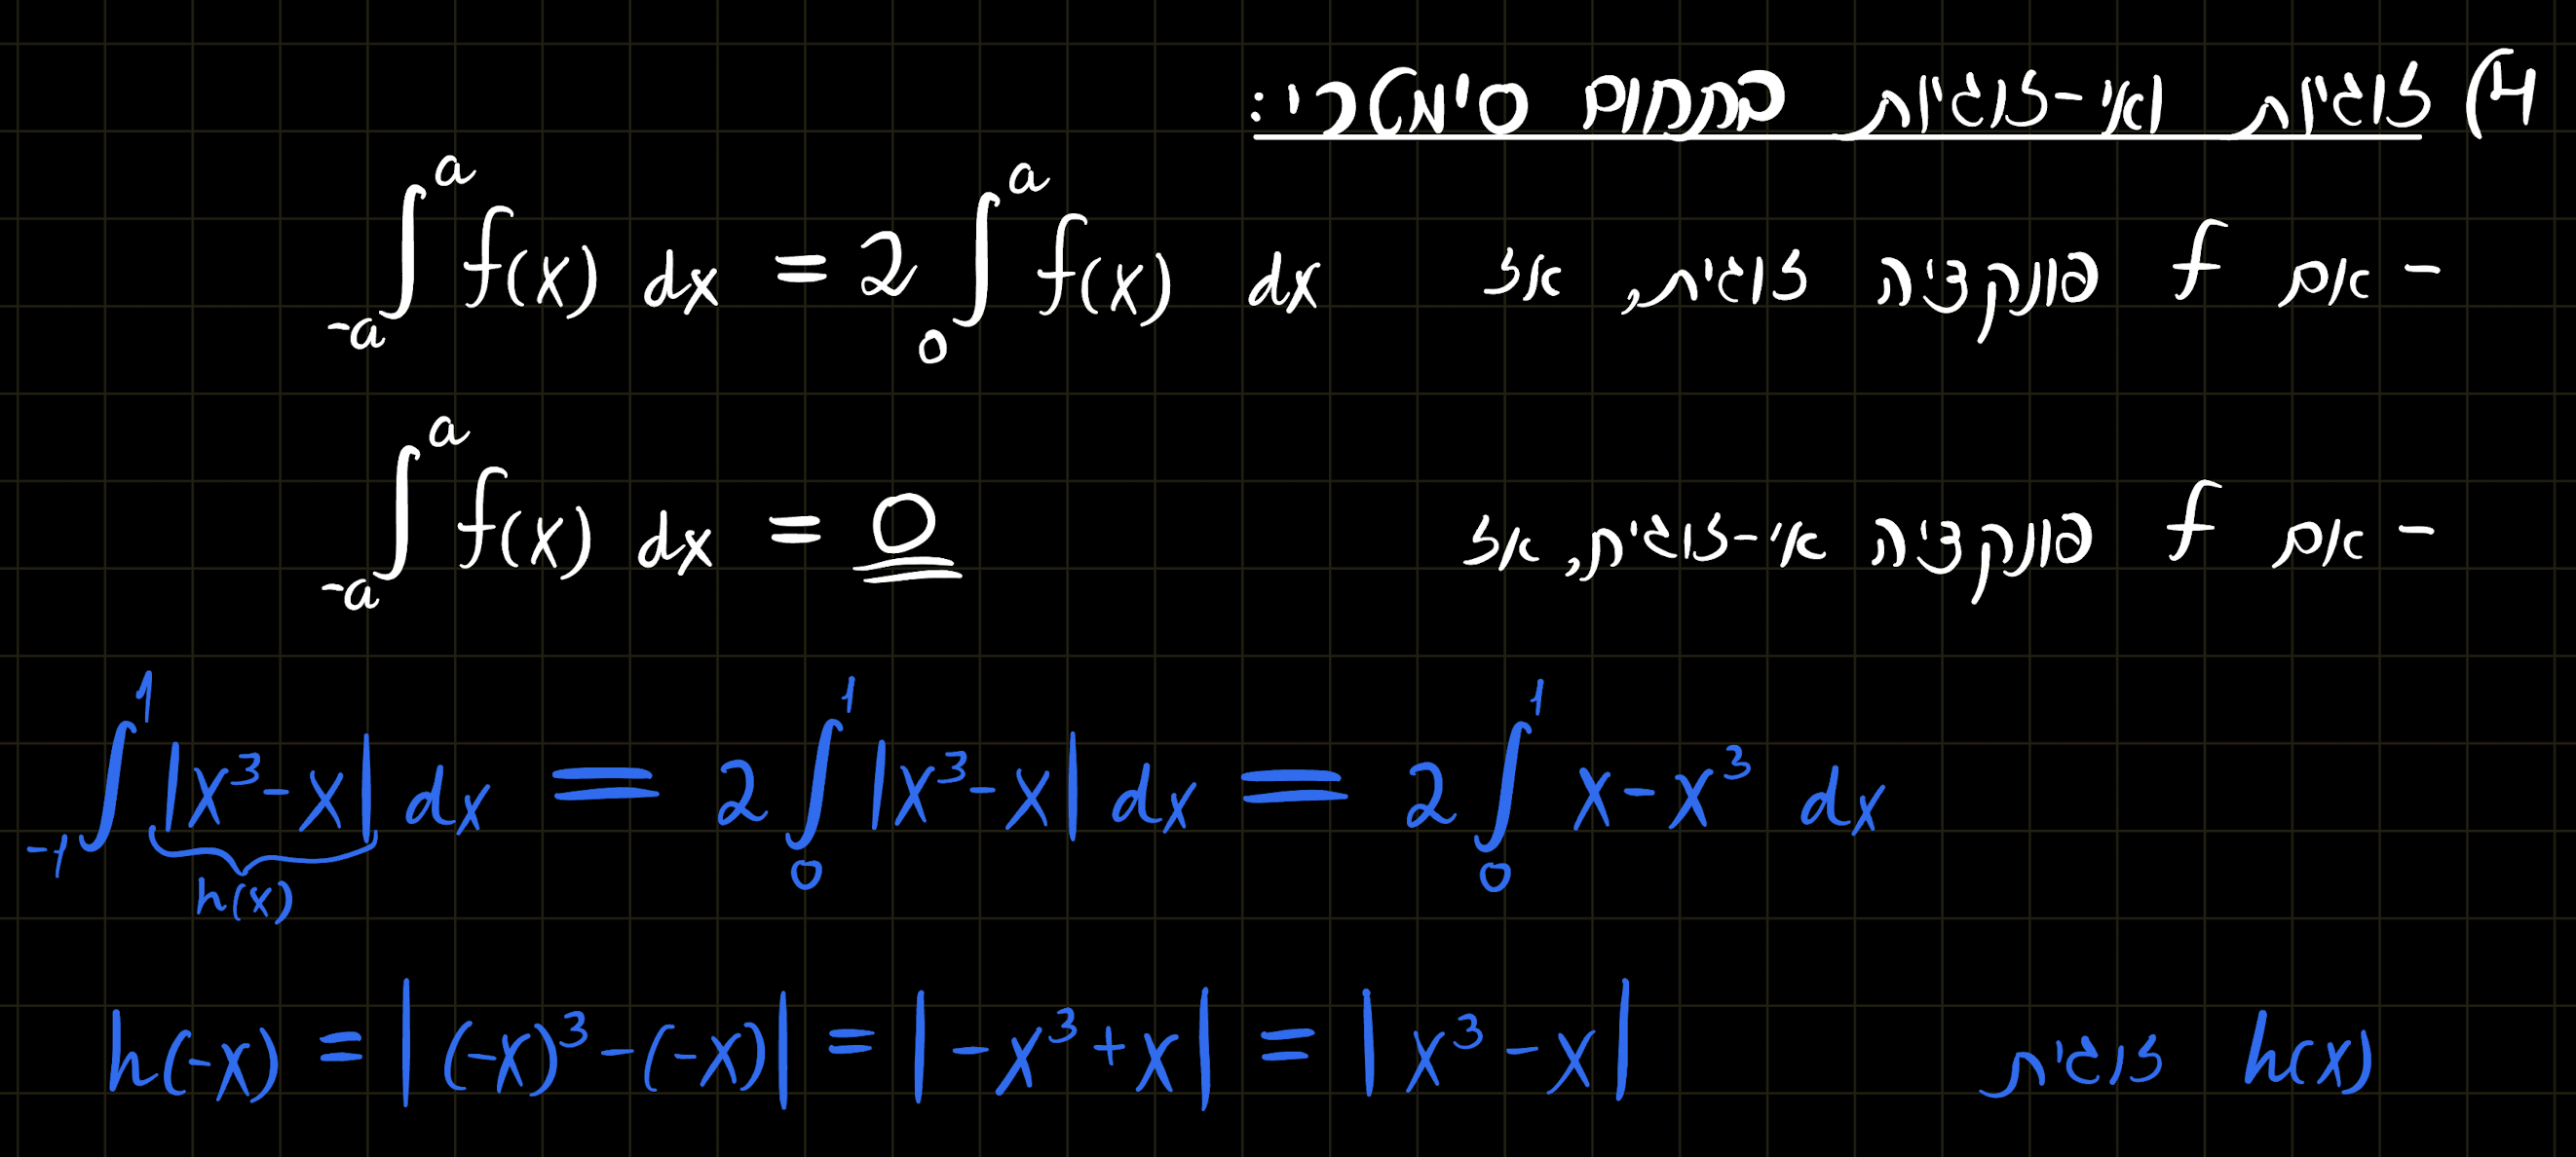 4) זוגיות ואי-זוגיות בתחום סימטרי:
- אם f פונקציה זוגית, אז ∫_{-a}^{a} f(x) dx = 2 ∫_{0}^{a} f(x) dx
- אם f פונקציה אי-זוגית, אז ∫_{-a}^{a} f(x) dx = 0
∫_{-1}^{1} |x³-x| dx = 2 ∫_{0}^{1} |x³-x| dx = 2 ∫_{0}^{1} x-x³ dx
h(x)
h(x) זוגית h(-x) = |(-x)³-(-x)| = |-x³+x| = |x³-x|